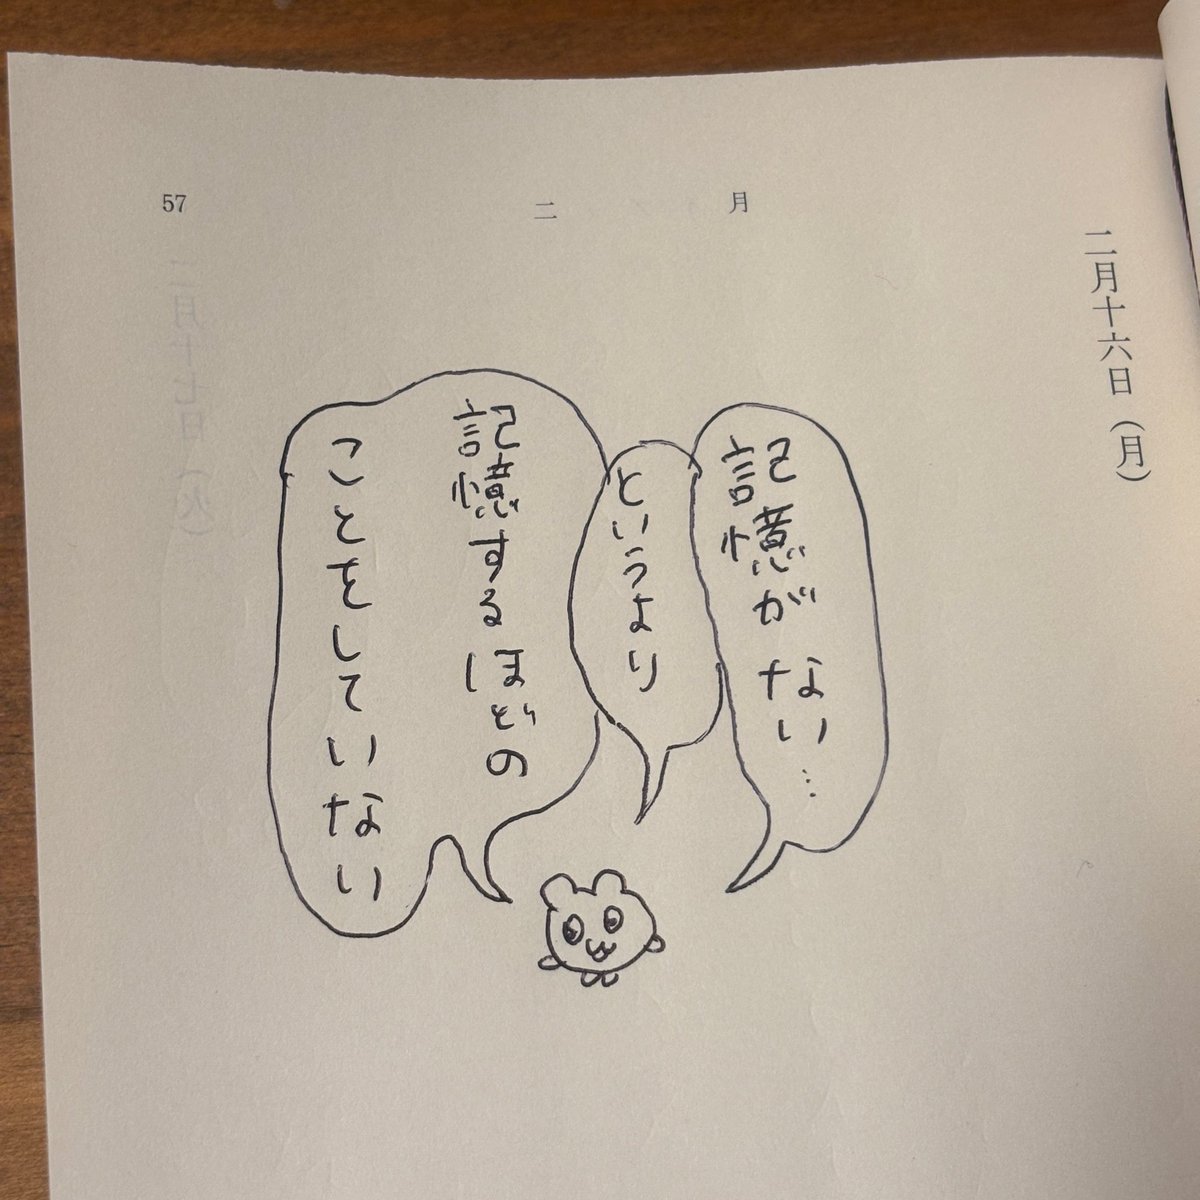 二月十六日(月)
二月
57
記憶がない…
というより
記憶するほどの
ことをしていない
二月十七日(火)